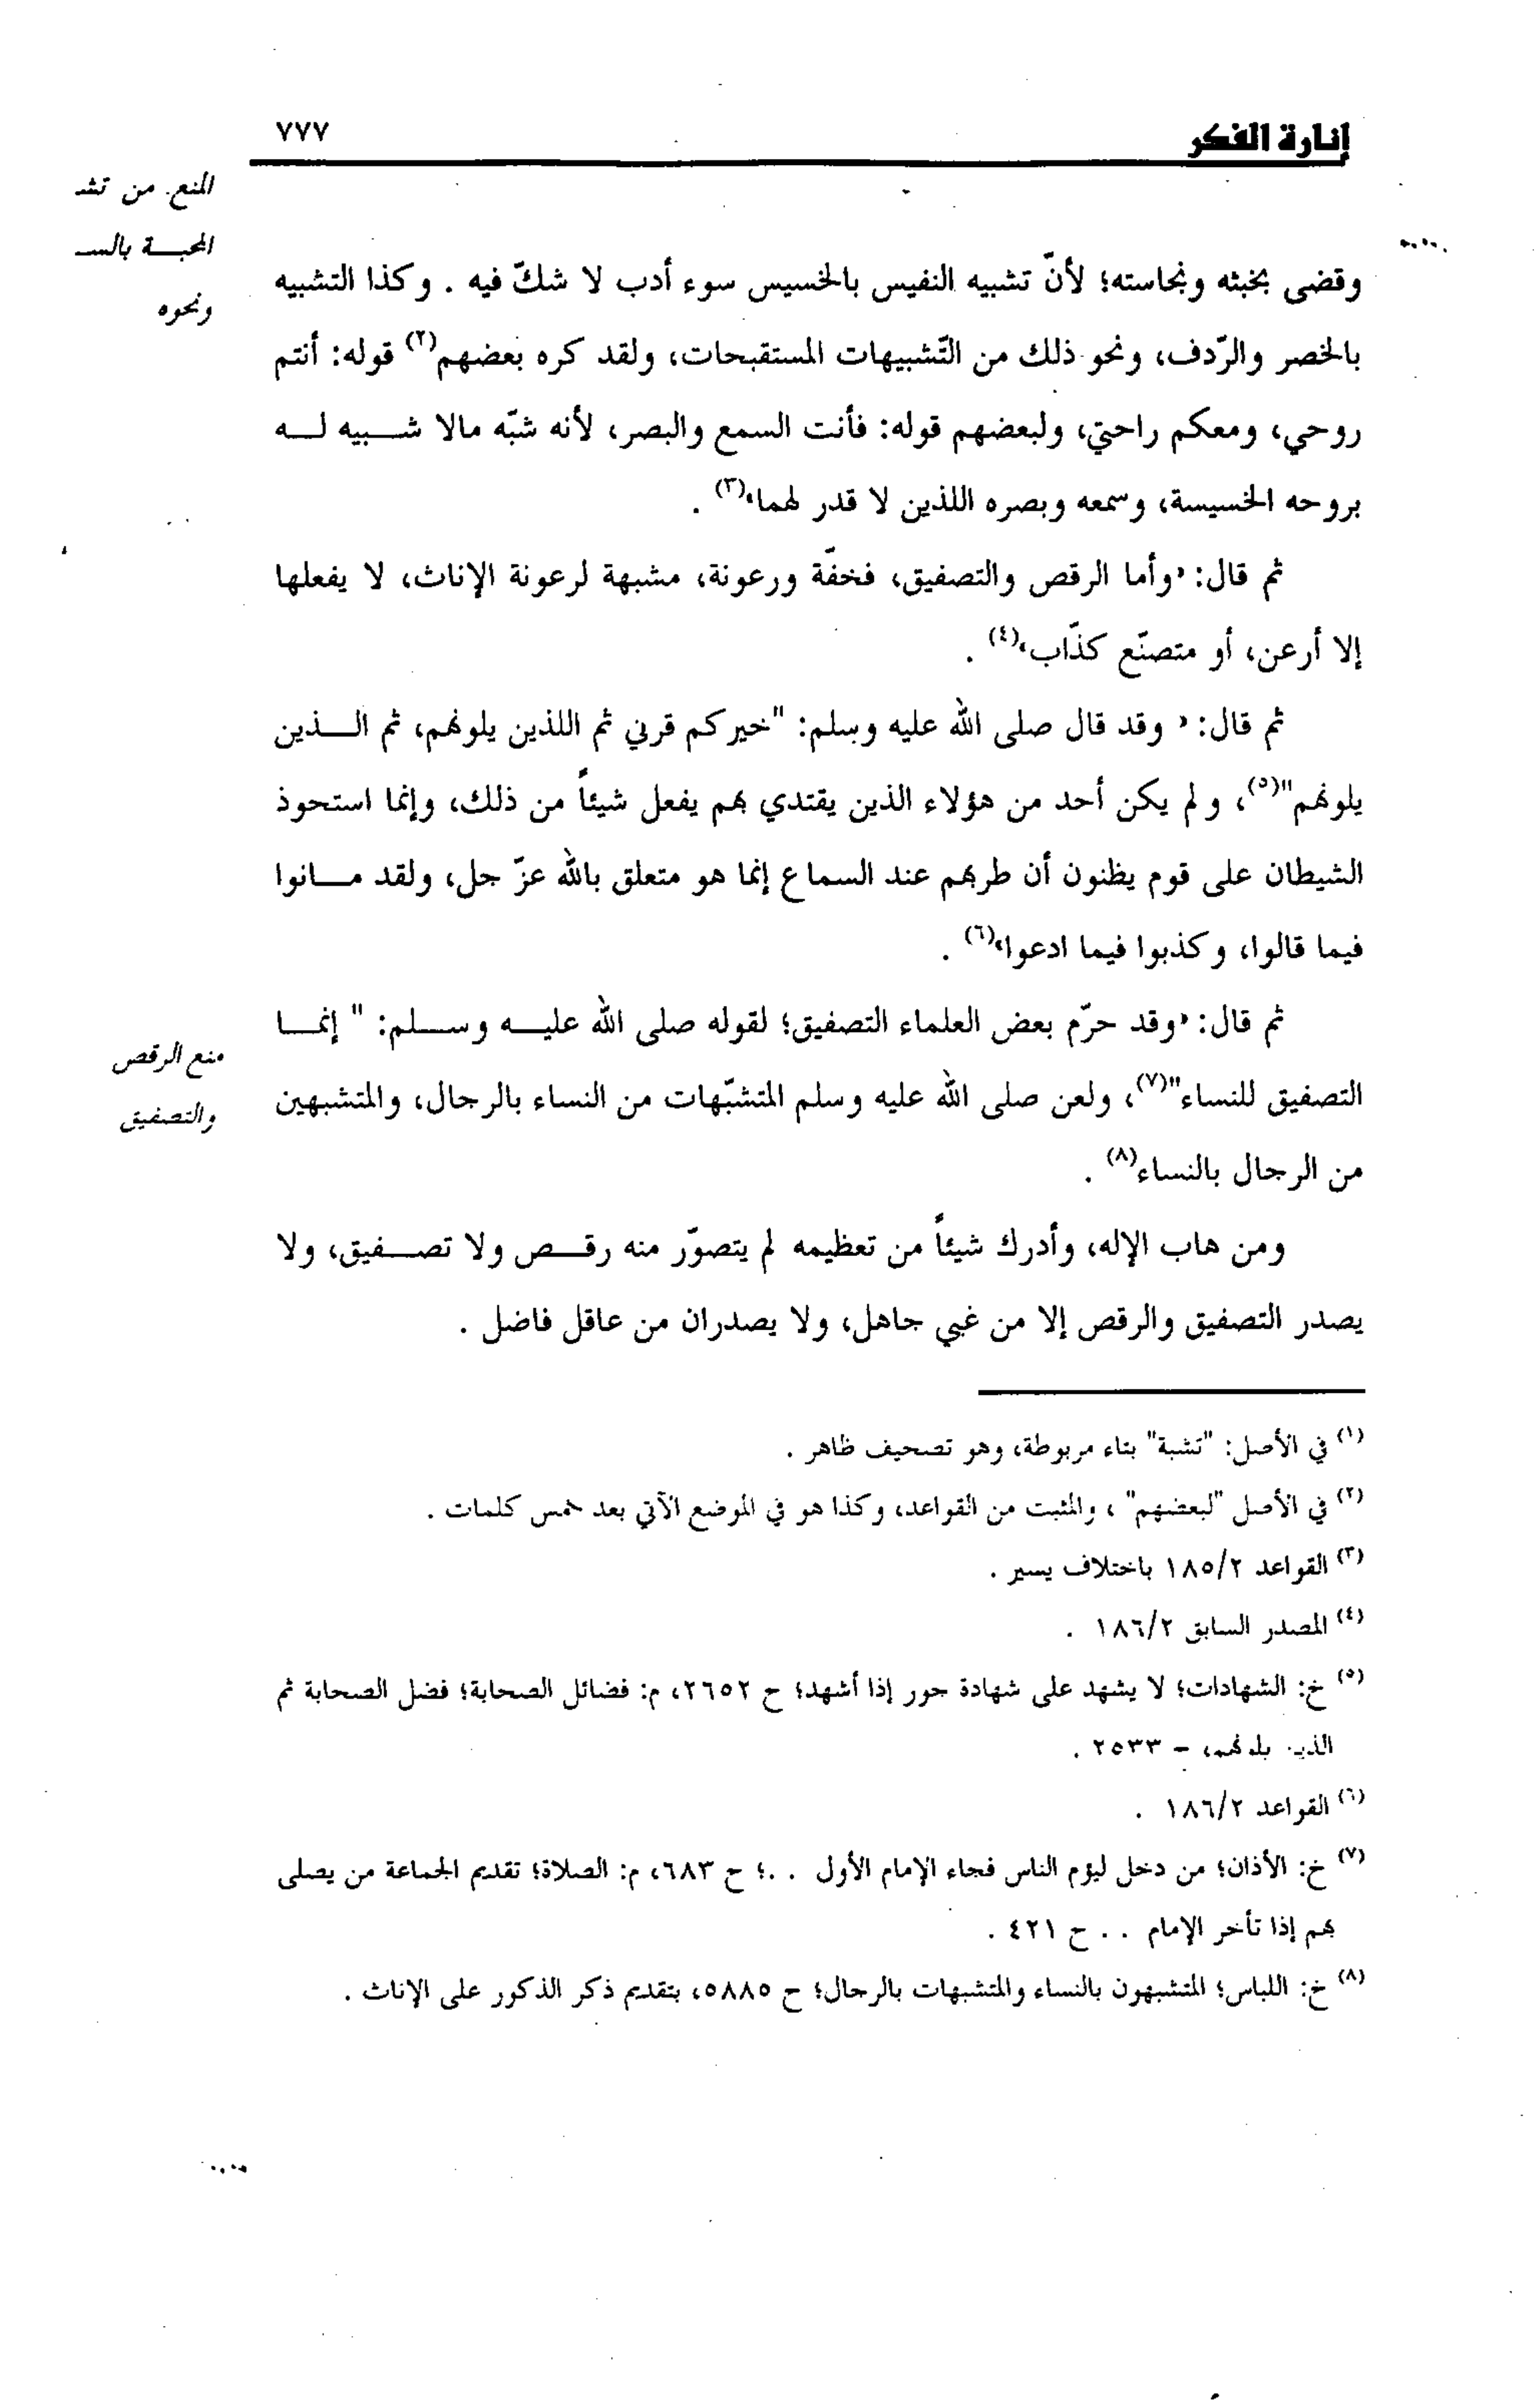 إنارة الفكر
٧٧٧
المنع من تشـ
المحبـــة بالســ
ونحوه
وقضى بخبثه ونجاسته؛ لأنّ تشبيه النفيس بالخسيس سوء أدب لا شكّ فيه . وكذا التشبيه
بالخصر والرّدف، ونحو ذلك من التّشبيهات المستقبحات، ولقد كره بعضهم(٢) قوله: أنتم
روحي، ومعكم راحتي، ولبعضهم قوله: فأنت السمع والبصر، لأنه شبّه مالا شـــبيه لـــه
بروحه الخسيسة، وسمعه وبصره اللذين لا قدر لهما»(٣) .
ثم قال: «وأما الرقص والتصفيق، فخفّة ورعونة، مشبهة لرعونة الإناث، لا يفعلها
إلا أرعن، أو متصنّع كذّاب»(٤) .
ثم قال: « وقد قال صلى الله عليه وسلم: "خيركم قرني ثم اللذين يلونهم، ثم الـــذين
يلونهم"(٥)، ولم يكن أحد من هؤلاء الذين يقتدي بهم يفعل شيئاً من ذلك، وإنما استحوذ
الشيطان على قوم يظنون أن طربهم عند السماع إنما هو متعلق بالله عزّ جل، ولقد مـــانوا
فيما قالوا، وكذبوا فيما ادعوا»(٦) .
ثم قال: «وقد حرّم بعض العلماء التصفيق؛ لقوله صلى الله عليـــه وســـلم: " إنمـــا
التصفيق للنساء"(٧)، ولعن صلى الله عليه وسلم المتشبّهات من النساء بالرجال، والمتشبهين
من الرجال بالنساء(٨) .
منع الرقص
والتصفيق
ومن هاب الإله، وأدرك شيئاً من تعظيمه لم يتصوّر منه رقـــص ولا تصـــفيق، ولا
يصدر التصفيق والرقص إلا من غبي جاهل، ولا يصدران من عاقل فاضل .
(١) في الأصل: "تشبة" بتاء مربوطة، وهو تصحيف ظاهر .
(٢) في الأصل "لبعضهم" ، والمثبت من القواعد، وكذا هو في الموضع الآتي بعد خمس كلمات .
(٣) القواعد ١٨٥/٢ باختلاف يسير .
(٤) المصدر السابق ١٨٦/٢ .
(٥) خ: الشهادات؛ لا يشهد على شهادة جور إذا أشهد؛ ح ٢٦٥٢، م: فضائل الصحابة؛ فضل الصحابة ثم
الذين يلونهم، ح ٢٥٣٣ .
(٦) القواعد ١٨٦/٢ .
(٧) خ: الأذان؛ من دخل ليؤم الناس فجاء الإمام الأول . .؛ ح ٦٨٣، م: الصلاة؛ تقديم الجماعة من يصلى
بهم إذا تأخر الإمام . . ح ٤٢١ .
(٨) خ: اللباس؛ المتشبهون بالنساء والمتشبهات بالرجال؛ ح ٥٨٨٥، بتقديم ذكر الذكور على الإناث .